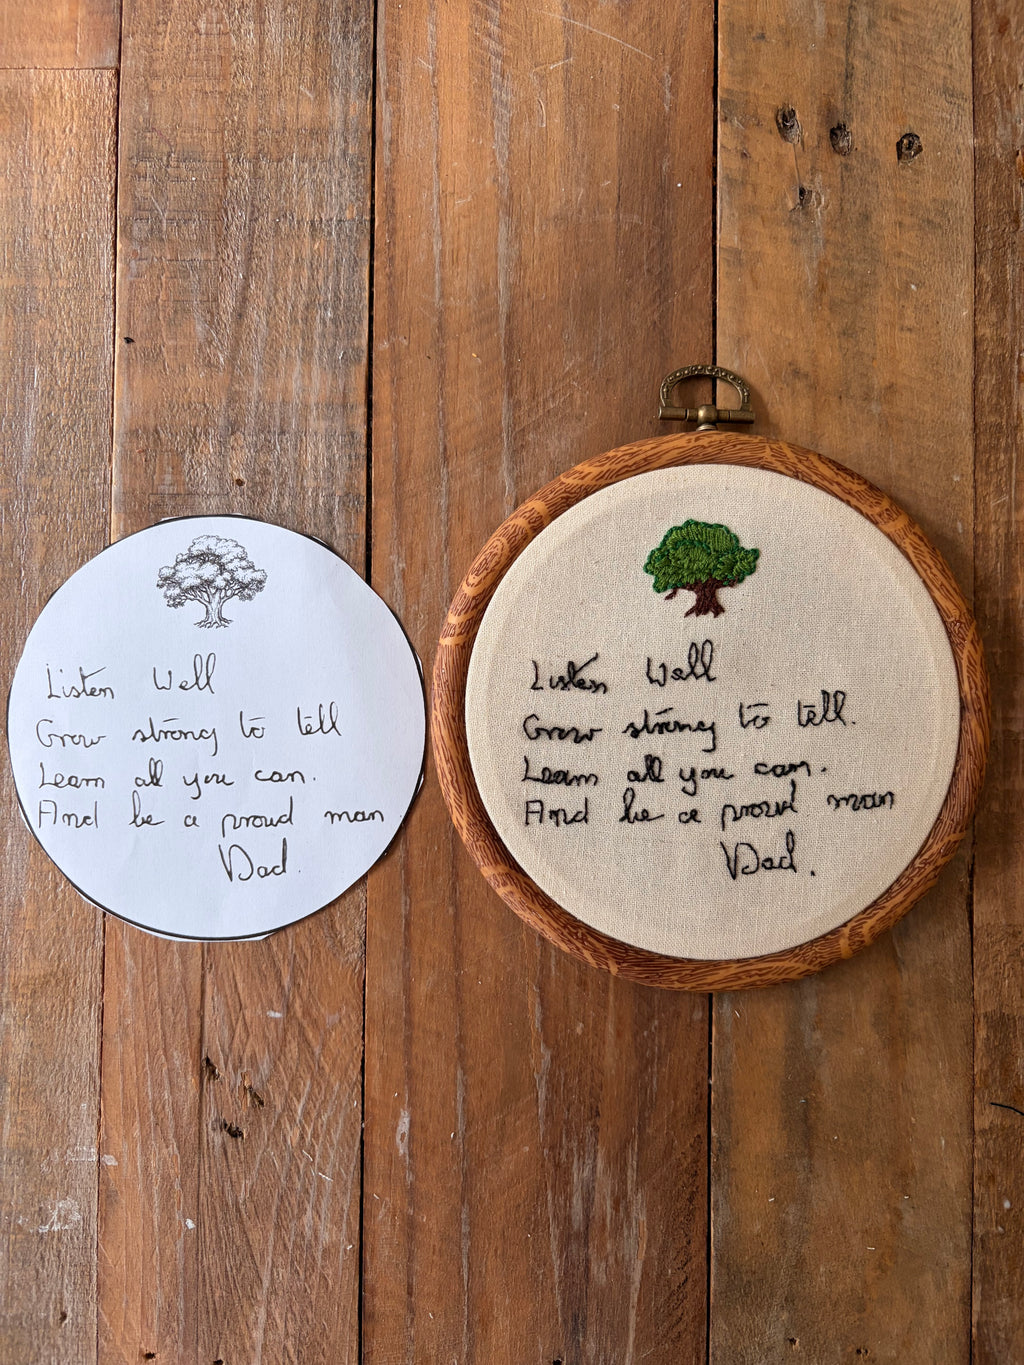 Listen Well
Grow strong to tell
Learn all you can.
And be a proud man
Dad.
Listen Well
Grow strong to tell.
Learn all you can.
And be a proud man
Dad.